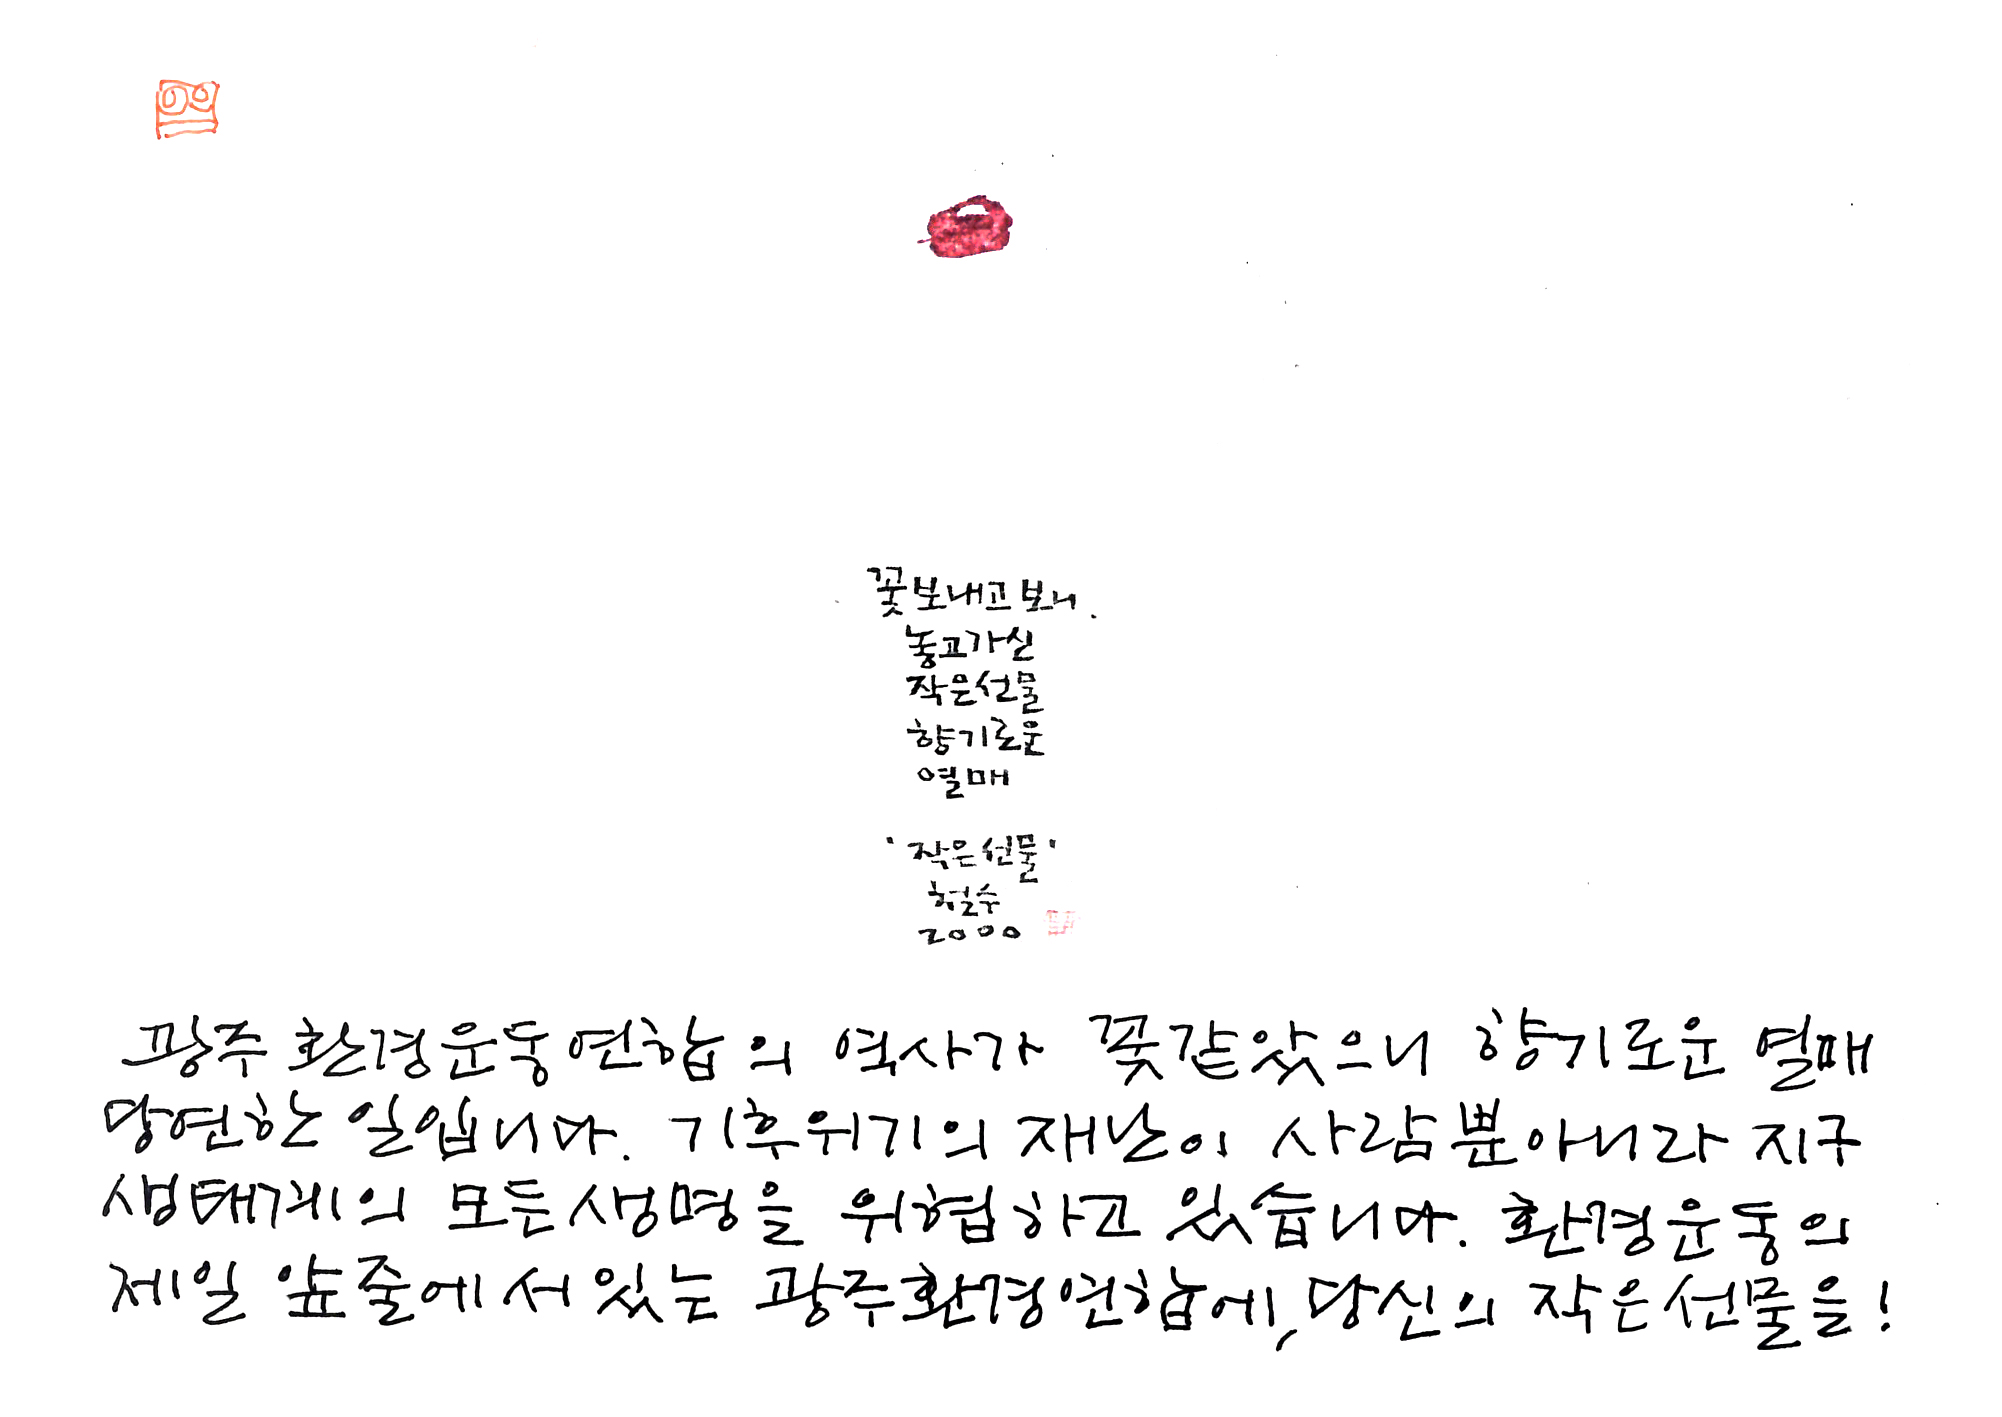 꽃보내고보니.
놓고가신
작은선물
향기로운
열매
'작은선물'
철수
2000
광주환경운동연합의 역사가 꽃같았으니 향기로운 열매
당연한 일입니다. 기후위기의 재난이 사람뿐아니라 지구
생태계의 모든생명을 위협하고 있습니다. 환경운동의
제일 앞줄에서있는 광주환경연합에, 당신의 작은선물을!